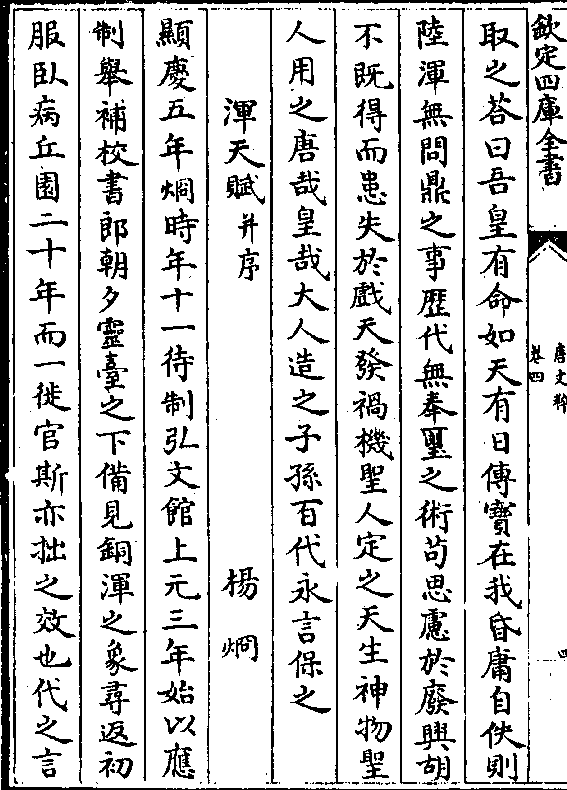 欽定四庫全書
唐文粹
卷四
四
取之荅曰吾皇有命如天有日傳寶在我昏庸自佚則
陸渾無問鼎之事歴代無奉璽之術苟思慮於廢興胡
不既得而患失於戲天發禍機聖人定之天生神物聖
人用之唐哉皇哉大人造之子孫百代永言保之
渾天賦并序 楊炯
顯慶五年烱時年十一待制弘文館上元三年始以應
制舉補校書郎朝夕靈臺之下備見銅渾之象尋返初
服臥病丘園二十年而一徙官斯亦拙之效也代之言